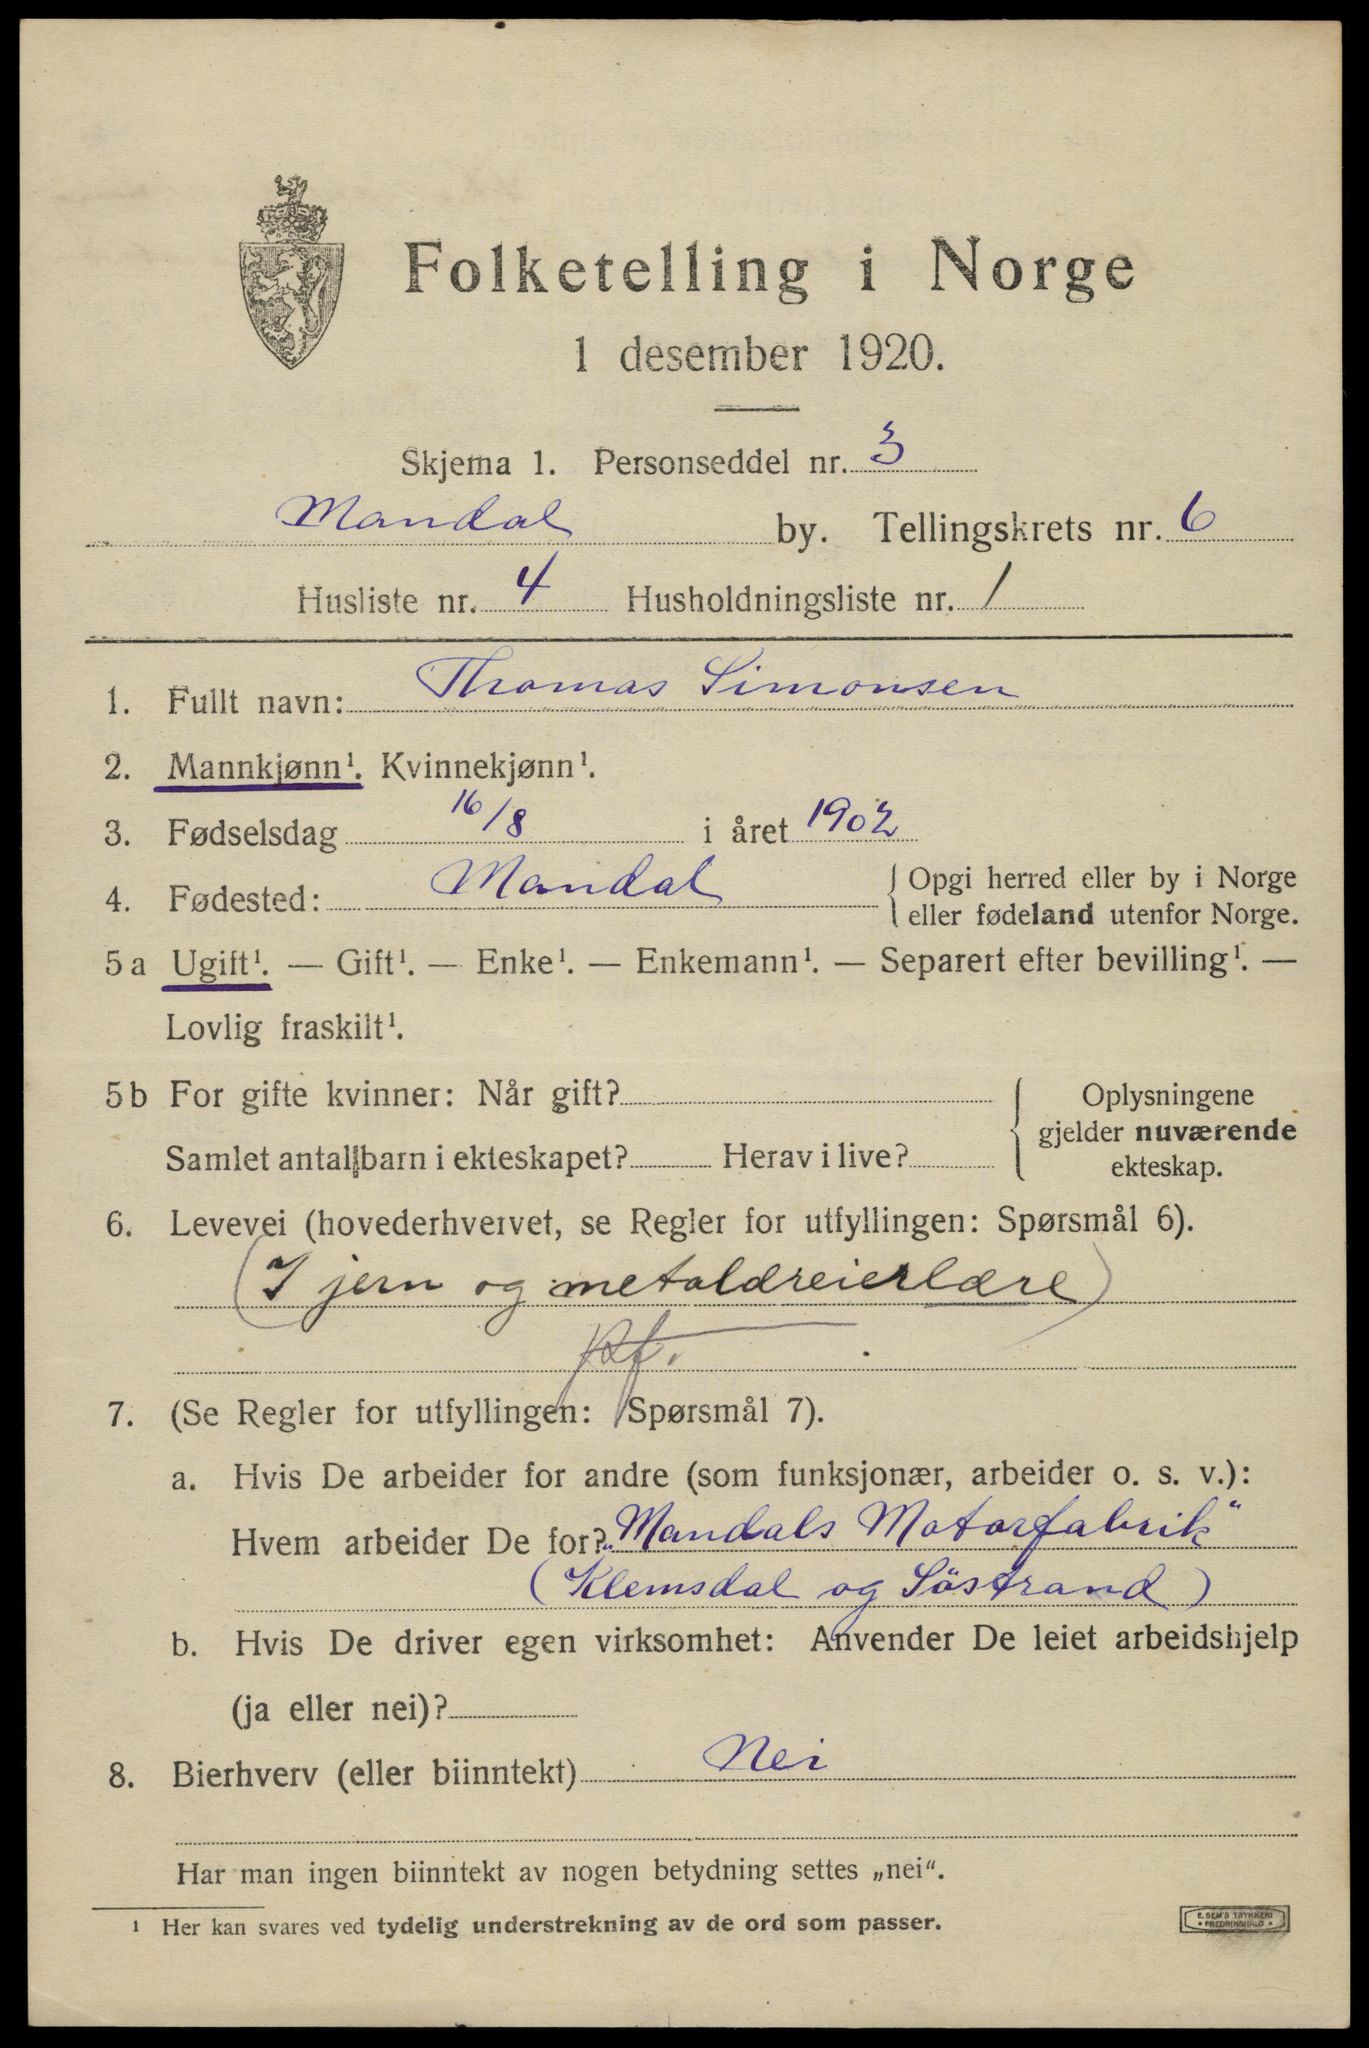 Folketelling i Norge
1 desember 1920.
Skjema 1. Personseddel nr. 3
Mandal by. Tellingskrets nr. 6
Husliste nr. 4 Husholdningsliste nr. 1
1. Fullt navn: Thomas Simonsen
2. Mannkjønn¹. Kvinnekjønn¹.
3. Fødselsdag 16/8 i året 1902
4. Fødested: Mandal { Opgi herred eller by i Norge
eller fødeland utenfor Norge.
5a Ugift¹. — Gift¹. — Enke¹. — Enkemann¹. — Separert efter bevilling¹. —
Lovlig fraskilt¹.
5b For gifte kvinner: Når gift? { Oplysningene
gjelder nuværende
Samlet antal barn i ekteskapet? Herav i live?
ekteskap.
6. Levevei (hovederhvervet, se Regler for utfyllingen: Spørsmål 6).
(I jern og metaldreierlære)
7. (Se Regler for utfyllingen: Spørsmål 7).
a. Hvis De arbeider for andre (som funksjonær, arbeider o. s. v.):
Hvem arbeider De for? „Mandals Motorfabrik"
(Klemsdal og Söstrand)
b. Hvis De driver egen virksomhet: Anvender De leiet arbeidshjelp
(ja eller nei)?
8. Bierhverv (eller biinntekt) Nei
Har man ingen biinntekt av nogen betydning settes „nei“.
¹ Her kan svares ved tydelig understrekning av de ord som passer.
E. SEM'S TRYKKERI
FREDRIKSHALD